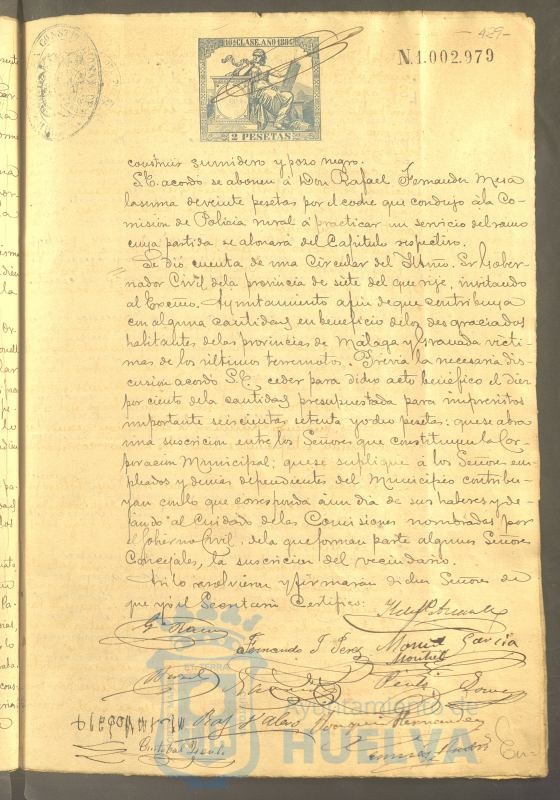 429-
10ª CLASE. AÑO 188
N.1.002.979
2 PESETAS
construir sumidero y pozo negro.
S.E. acordó se abonen á Don Rafael Fernandez Mesa
la suma de veinte pesetas por el coche que condujo á la Co-
mision de Policía rural á practicar un servicio del ramo
cuya partida se abonará del Capitulo respectivo.
Se dió cuenta de una Circular del Iltmo. Sr. Gober-
nador Civil de la provincia de siete del que rije, invitando
al Excmo. Ayuntamiento afin de que contribuya
con alguna cantidad en beneficio de los desgraciados
habitantes de las provincias de Malaga y Granada victi-
mas de los ultimos terremotos. Prévia la necesaria dis-
cusion acordó S.E. ceder para dicho acto benéfico el diez
por ciento de la cantidad presupuestada para imprevistos
importante seiscientas setenta y ocho pesetas: que se abra
una suscricion entre los Señores que constituyen la Cor-
poracion Municipal; que se suplique á los Señores em-
pleados y demás dependientes del Municipio contribu-
yan con lo que corresponda á un dia de sus haberes y de-
jando al cuidado de las Comisiones nombradas por
el Gobierno Civil, de la que forman parte algunos Señores
Concejales, la suscricion del vecindario.
Asi lo resolvieron y firmarán dichos Señores de
que yo el Secretario Certifico.
Fernando T. Perez Garcia
Joaquin Hernandez
Cristobal
Ayuntamiento de
HUELVA